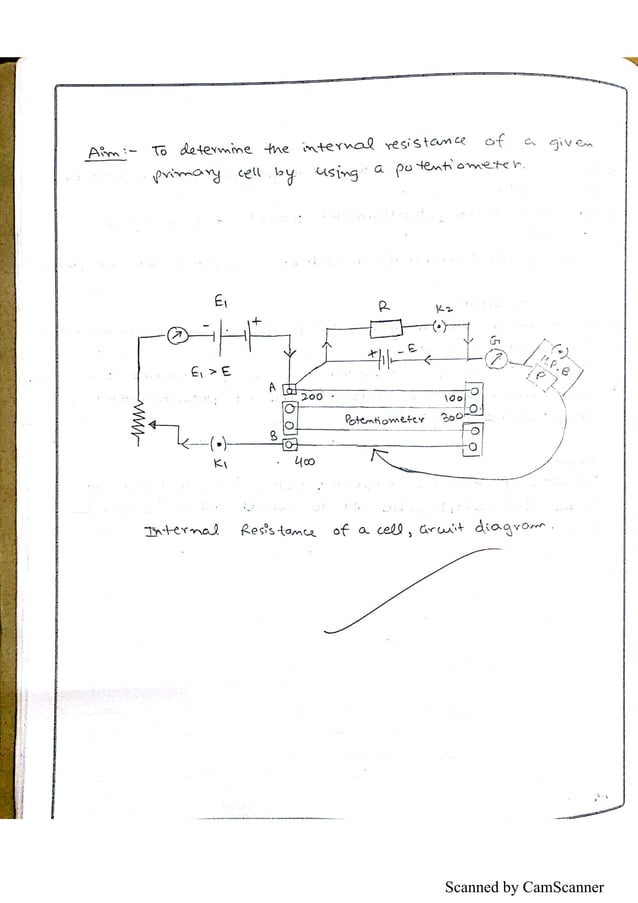 Aim:- To determine the internal resistance of a given
primary cell by using a potentiometer.
E1
- +
E1 > E
R
K2
+ - E
G
H.P.B
P
A
200
100
Potentiometer 300
B
400
K1
Internal Resistance of a cell, circuit diagram.
Scanned by CamScanner